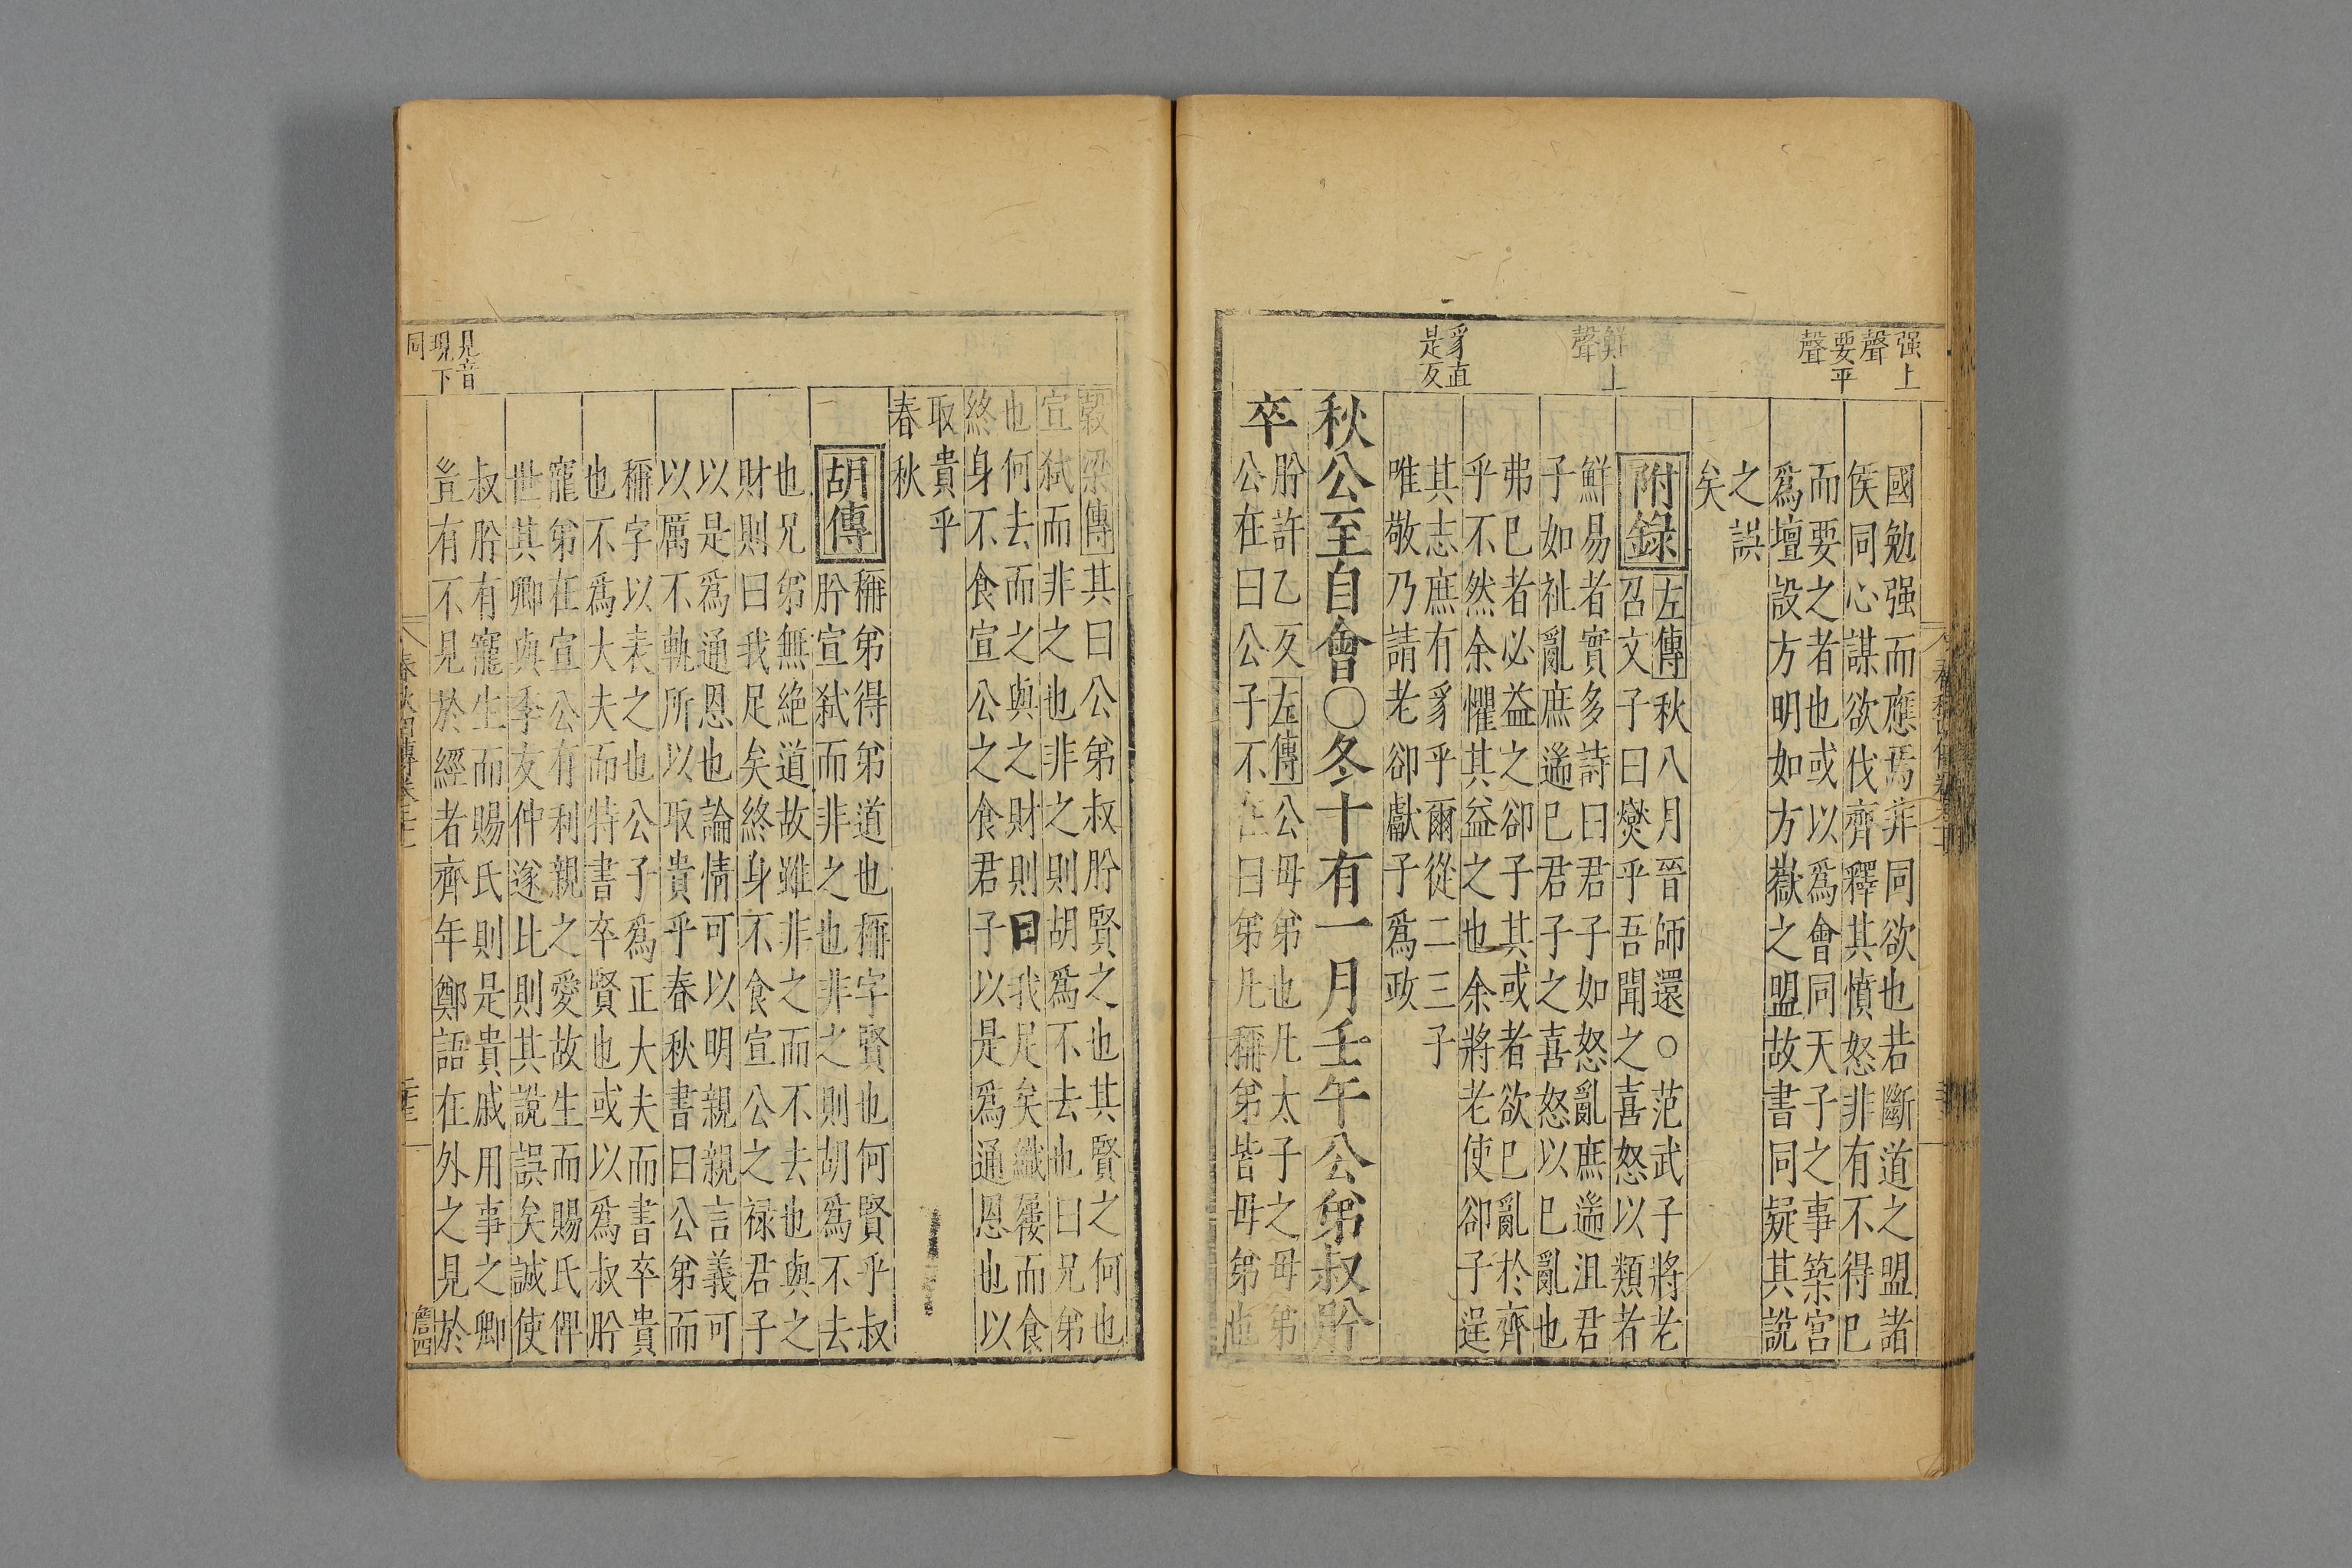 强上
聲
要平
聲
鮮上
聲
豸直
是反
國勉强而應焉非同欲也若斷道之盟諸
侯同心謀欲伐齊釋其憤怒非有不得已
而要之者也或以爲會同天子之事築宮
爲壇設方明如方嶽之盟故書同疑其說
之誤
矣
附錄
左傳秋八月晉師還○范武子將老
召文子曰燮乎吾聞之喜怒以類者
鮮易者實多詩曰君子如怒亂庶遄沮君
子如祉亂庶遄已君子之喜怒以已亂也
弗已者必益之卻子其或者欲已亂於齊
乎不然余懼其益之也余將老使卻子逞
其志庶有豸乎爾從二三子
唯敬乃請老卻獻子爲政
秋公至自會○冬十有一月壬午公弟叔肹
卒
肹許乙反左傳公母弟也凡太子之母弟
公在曰公子不在曰弟凡稱弟皆母弟也
穀梁傳其曰公弟叔肹賢之也其賢之何也
宣弑而非之也非之則胡爲不去也曰兄弟
也何去而之與之財則曰我足矣織屨而食
終身不食宣公之食君子以是爲通恩也以
取貴乎
春秋
胡傳
稱弟得弟道也稱字賢也何賢乎叔
肹宣弑而非之也非之則胡爲不去
也兄弟無絶道故雖非之而不去也與之
財則曰我足矣終身不食宣公之祿君子
以是爲通恩也論情可以明親親言義可
以厲不軌所以取貴乎春秋書曰公弟而
稱字以表之也公子爲正大夫而書卒貴
也不爲大夫而特書卒賢也或以爲叔肹
寵弟在宣公有私親之愛故生而賜氏俾
世其卿與季友仲遂比則其說誤矣誠使
叔肹有寵生而賜氏則是貴戚用事之卿
豈有不見於經者齊年鄭語在外之見於
見音
現下
同
春秋四傳卷二十
詹四